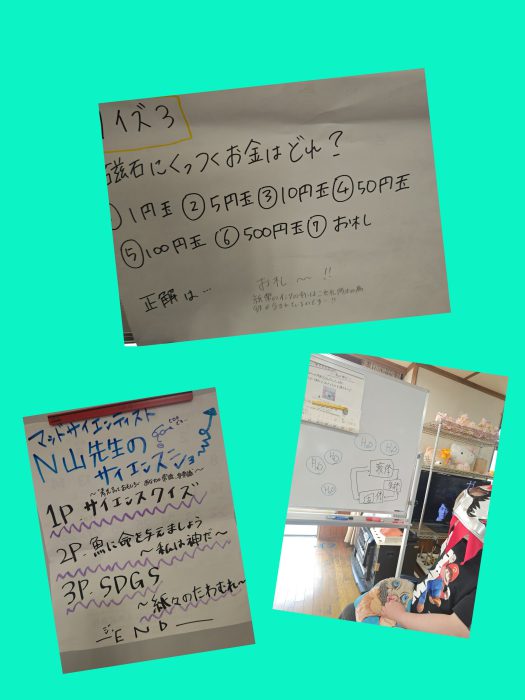 イズ3
磁石にくっつくお金はどれ?
1円玉 ②5円玉 ③10円玉 ④50円玉
⑤100円玉 ⑥500円玉 ⑦お札
正解は…
お札〜!!
マッドサイエンティスト
N山先生の
サイエンスショー
1P. サイエンスクイズ
2P. 魚に命を与えましょう
〜私は神だ〜
3P. SDGS
〜紙々のたわむれ〜
END
H₂O
H₂O
H₂O
H₂O
H₂O
H₂O
液体
気体
固体